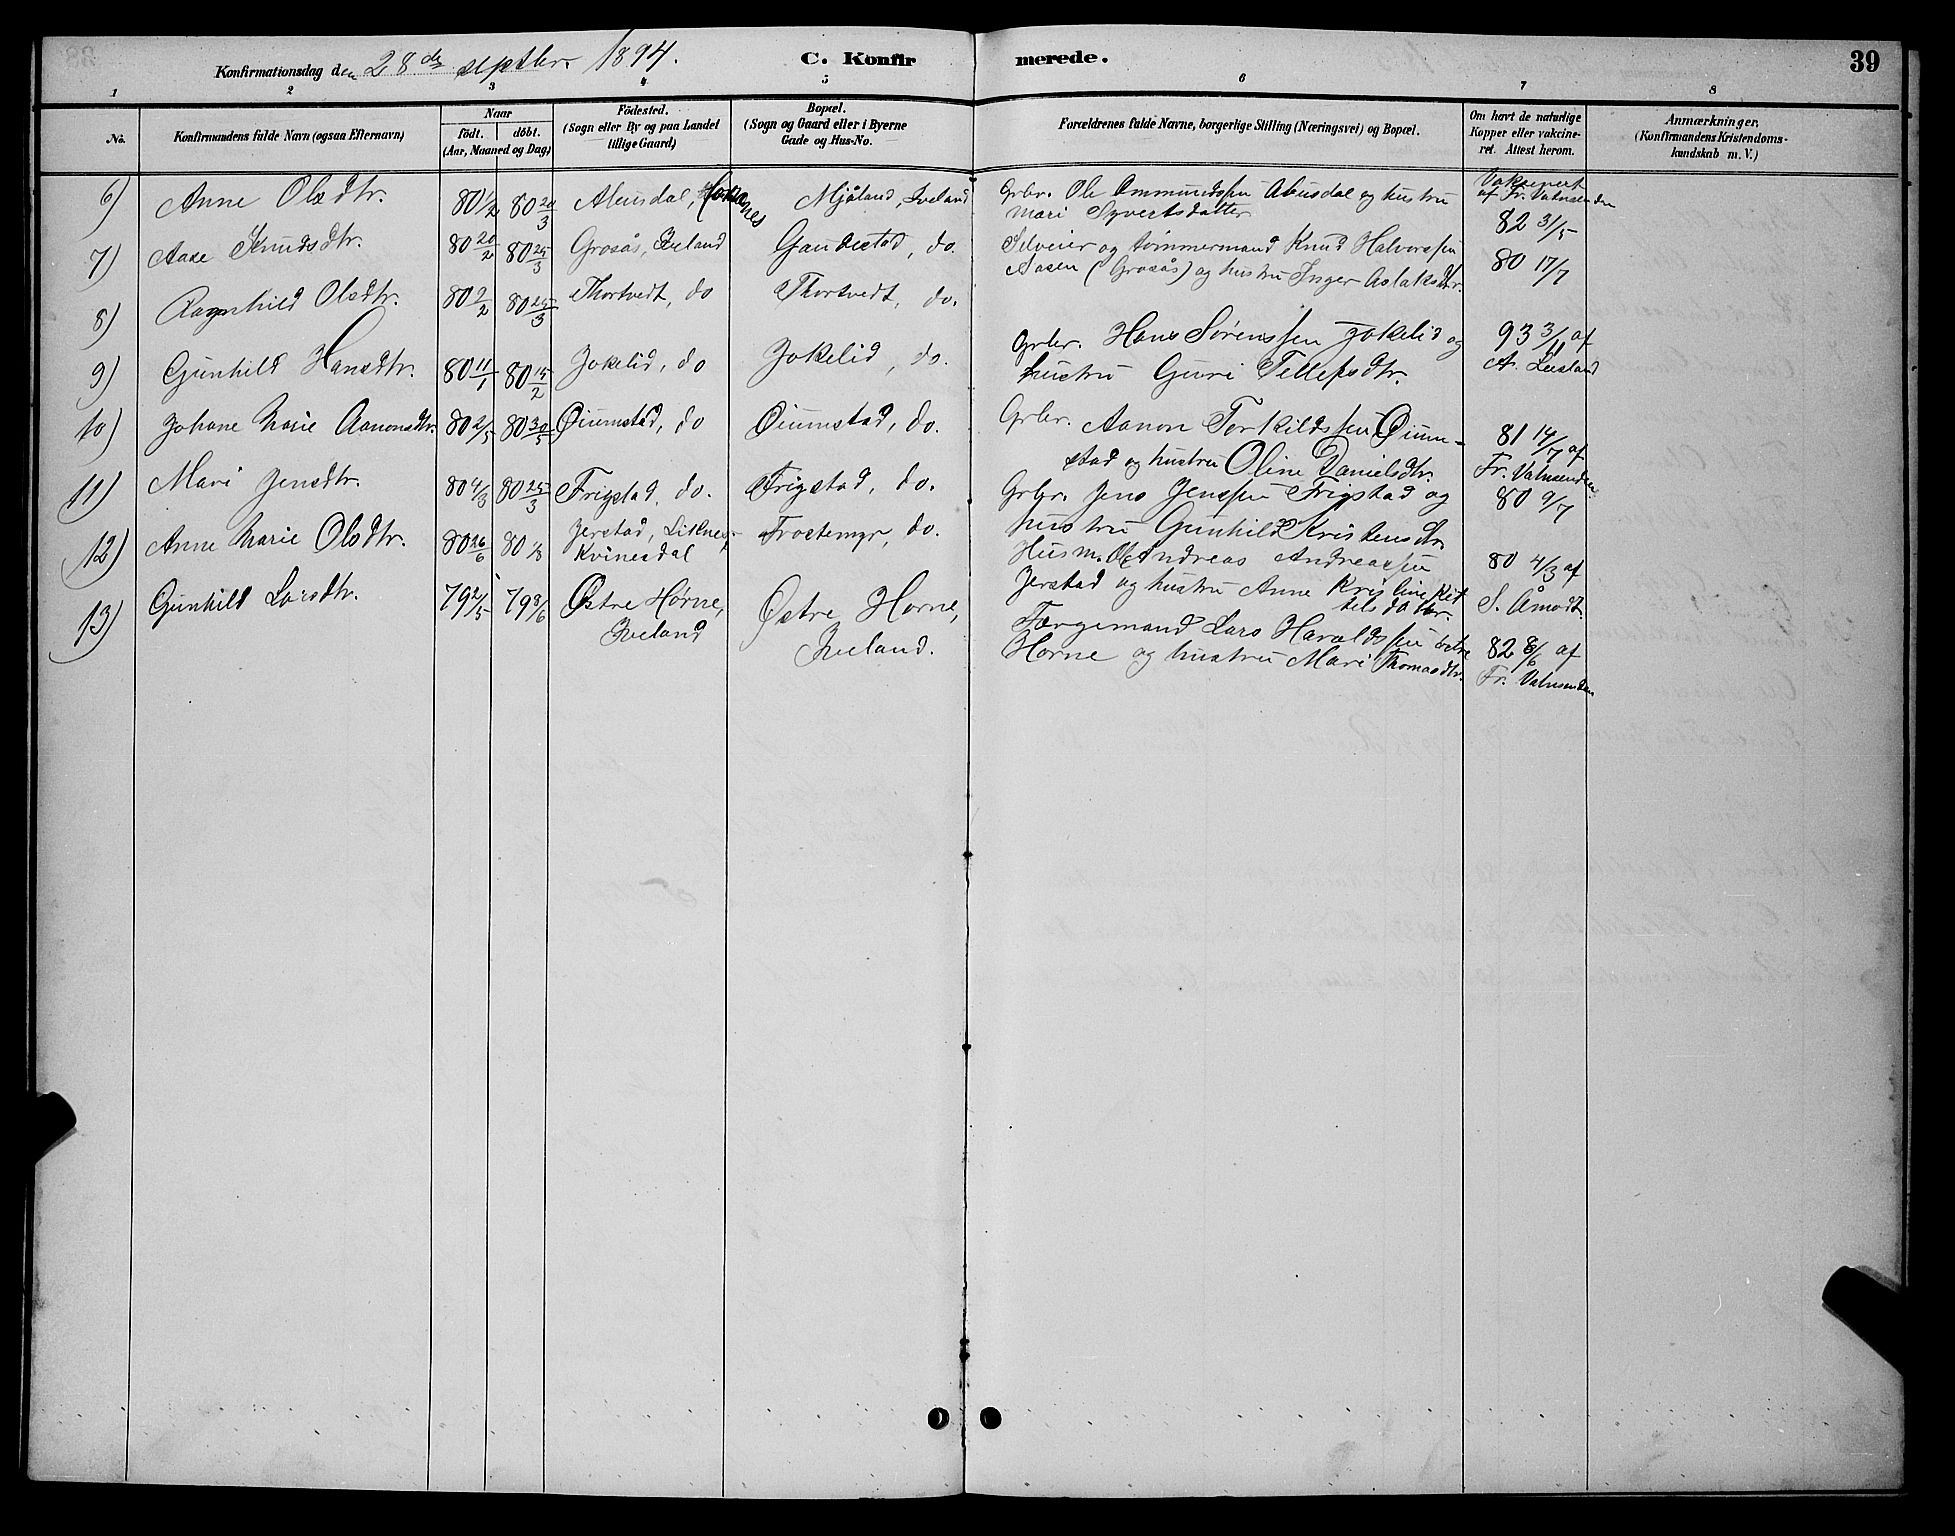 Konfirmationsdag den 28de septbr. 1894. C. Konfirmerede. 39
1 2 3 4 5 6 7 8
No. Konfirmandens fulde Navn (ogsaa Efternavn) Naar födt. döbt. (Aar, Maaned og Dag) Födested. (Sogn eller By og paa Landet tillige Gaard) Bopæl. (Sogn og Gaard eller i Byerne Gade og Hus-No. Foræeldrenes fulde Navne, borgerlige Stilling (Næringsvei) og Bopæl. Om havt de naturlige Kopper eller vakcineret. Attest herom. Anmærkninger, (Konfirmandens Kristendomskundskab m. V.)
6) Anne Olsdtr. 80 1/2 80 20/3 Abusdal, Mjåland, Iveland Grbr. Ole Ommundssen Abusdal og hustru
Mari Syvertsdatter Vakcinert af Fr. Valnsenden 82 31/5
7) Aase Knudsdtr. 80 20/2 80 25/3 Grosås, Iveland Gaudestad, do. Selveier og tømmermand Knud Halvorssen
Aasen (Grosås) og hustru Inger Aslaksdtr. 80 17/7
8) Ragnhild Olsdtr. 80 2/2 80 25/3 Thortvedt, do Thortvedt, do.
9) Gunhild Hansdtr. 80 11/1 80 15/2 Jokelid, do Jokelid, do. Grbr. Hans Sørenssen Jokelid og
hustru Guri Tellefsdtr. 93 3/11 af
A. Leiland
10) Johane Marie Aanonsdtr. 80 2/5 80 30/5 Øiumstad, do Øiumstad, do. Grbr. Aanon Torkildssen Øium-
stad og hustru Oline Danielsdtr. 81 14/7 af
Fr. Valnsenden
11) Mari Jensdtr. 80 4/3 80 25/3 Frigstad, do. Frigstad, do. Grbr. Jens Jenssen Frigstad og
hustru Gunhild Kristensdtr 80 9/7
12) Anne Marie Olsdtr. 80 26/6 80 1/8 Jerstad, Liknes,
Kvinesdal Frostemyr, do. Husm. Ole Andreas Andreassen
Jerstad og hustru Anne Kristine Ket
telsdatter. 80 4/3 af
S. Åmodt.
13) Gunhild Larsdtr. 79 2/5 79 8/6 Østre Horne,
Iveland Østre Horne,
Iveland. Færgemand Lars Haraldssen østre
Horne og hustru Mari Thomasdtr. 82 8/6 af
Fr. Valnsenden